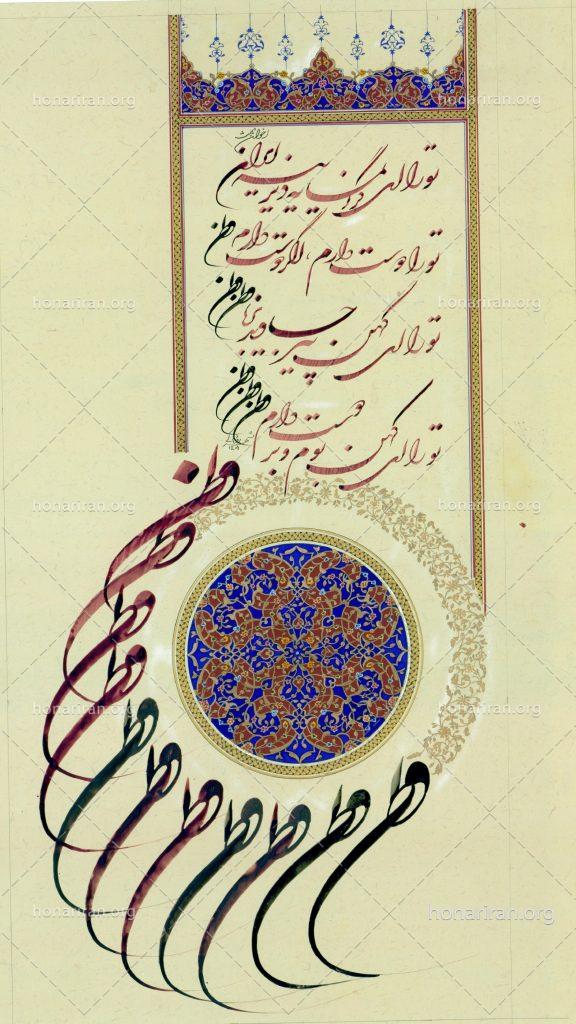 honariran.org honariran.org
اخوان ثالث
تو را ای گرانمایه دیرینه ایران
تو را دوست دارم، اگر دوست دارم وطن
honariran.org honariran.org
تو را ای کهن پیر جاوید برنا وطن وطن
تو را ای کهن بوم و بر دوست دارم وطن وطن وطن
وطن
honariran.org honariran.org
وطن
وطن
وطن
honariran.org honariran.org
وطن
وطن
وطن
وطن
وطن
وطن
وطن
honariran.org honariran.org